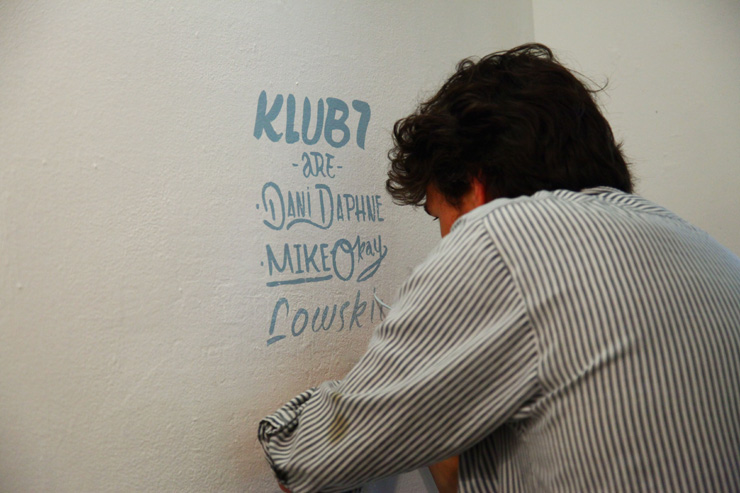 KLUB7
-are-
· Dani Daphne
· Mike Okay
Lowski